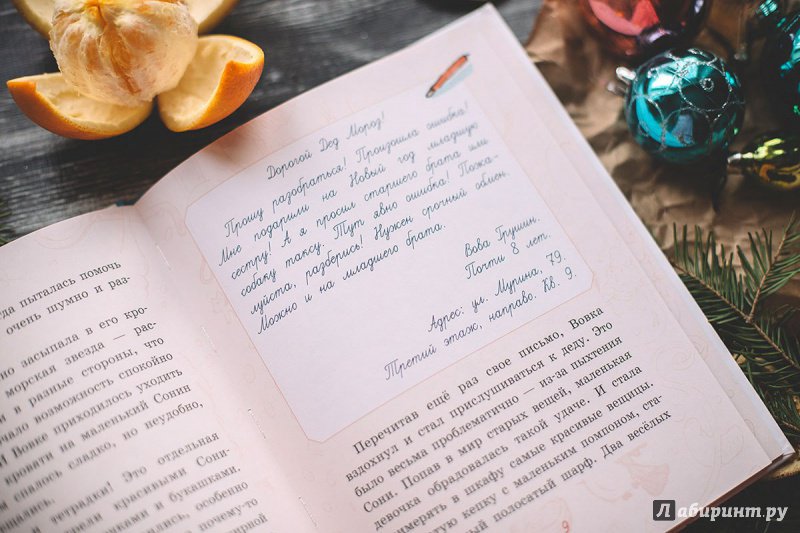 да пыталась помочь
очень шумно и раз-
но засыпала в его кро-
морская звезда — рас-
в разные стороны, что
возможность спокойно
Вовке приходилось уходить
кровати на маленький Сонин
спалось сладко, но неудобно,
тетрадки! Это отдельная
красивыми Сони-
и букашками.
особенно
почему-то
Дорогой Дед Мороз!
Прошу разобраться! Произошла ошибка!
Мне подарили на Новый год младшую
сестру! А я просил старшего брата или
собаку таксу. Тут явно ошибка! Пожа-
луйста, разберись! Нужен срочный обмен.
Можно и на младшего брата.
Вова Грушин.
Почти 8 лет.
Адрес: ул. Мурина, 79.
Третий этаж, направо. Кв. 9.
Перечитав ещё раз свое письмо, Вовка
вздохнул и стал прислушиваться к деду. Это
было весьма проблематично — из-за пыхтения
Сони. Попав в мир старых вещей, маленькая
девочка обрадовалась такой удаче. И стала
примерять в шкафу самые красивые вещицы.
кепку с маленьким помпоном, ста-
полосатый шарф. Два весёлых
9
Лабиринт.ру